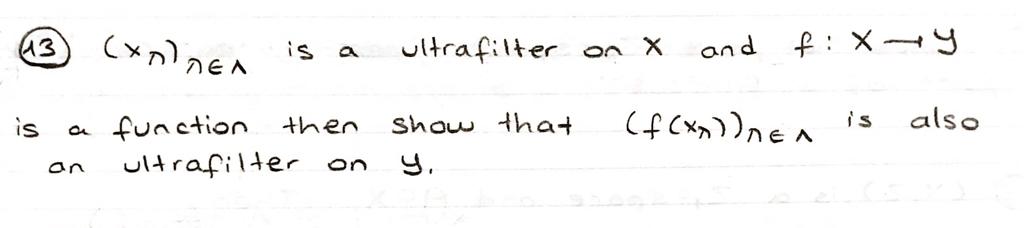 13 (xn)n∈Λ is a ultrafilter on X and f: X→y
is a function then show that (f(xn))n∈Λ is also
an ultrafilter on y.